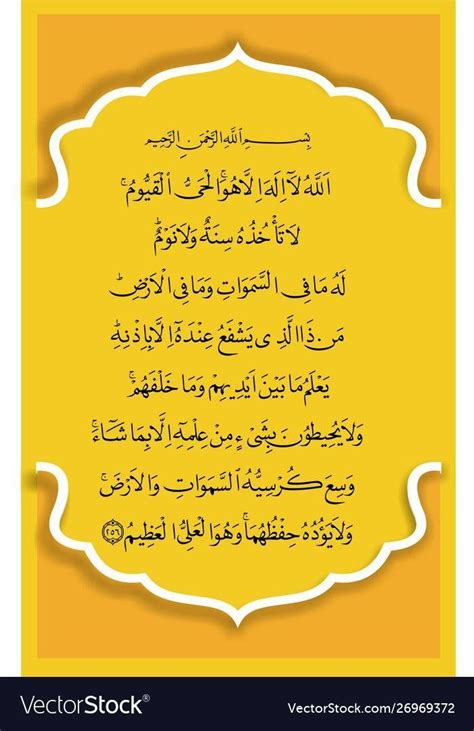 بِسْمِ اللَّهِ الرَّحْمَنِ الرَّحِيمِ
اَللَّهُ لَآ اِلَهَ اِلَّا هُوَ الْحَىُّ الْقَيُّومُ ۚ
لَا تَأْخُذُهُ سِنَةٌ وَلَا نَوْمٌ ۗ
لَهُ مَا فِى السَّمَوَاتِ وَمَا فِى الْاَرْضِ ۗ
مَنْ ذَا الَّذِى يَشْفَعُ عِنْدَهُٓ اِلَّا بِاِذْنِهِ ۗ
يَعْلَمُ مَا بَيْنَ اَيْدِيهِمْ وَمَا خَلْفَهُمْ ۚ
وَلَا يُحِيطُونَ بِشَىْءٍ مِنْ عِلْمِهِٓ اِلَّا بِمَا شَآءَ ۚ
وَسِعَ كُرْسِيُّهُ السَّمَوَاتِ وَالْاَرْضَ ۚ
وَلَا يَؤُدُهُ حِفْظُهُمَا ۚ وَهُوَ الْعَلِىُّ الْعَظِيمُ ﴿٢٥٦﴾
VectorStock®
VectorStock.com/26969372